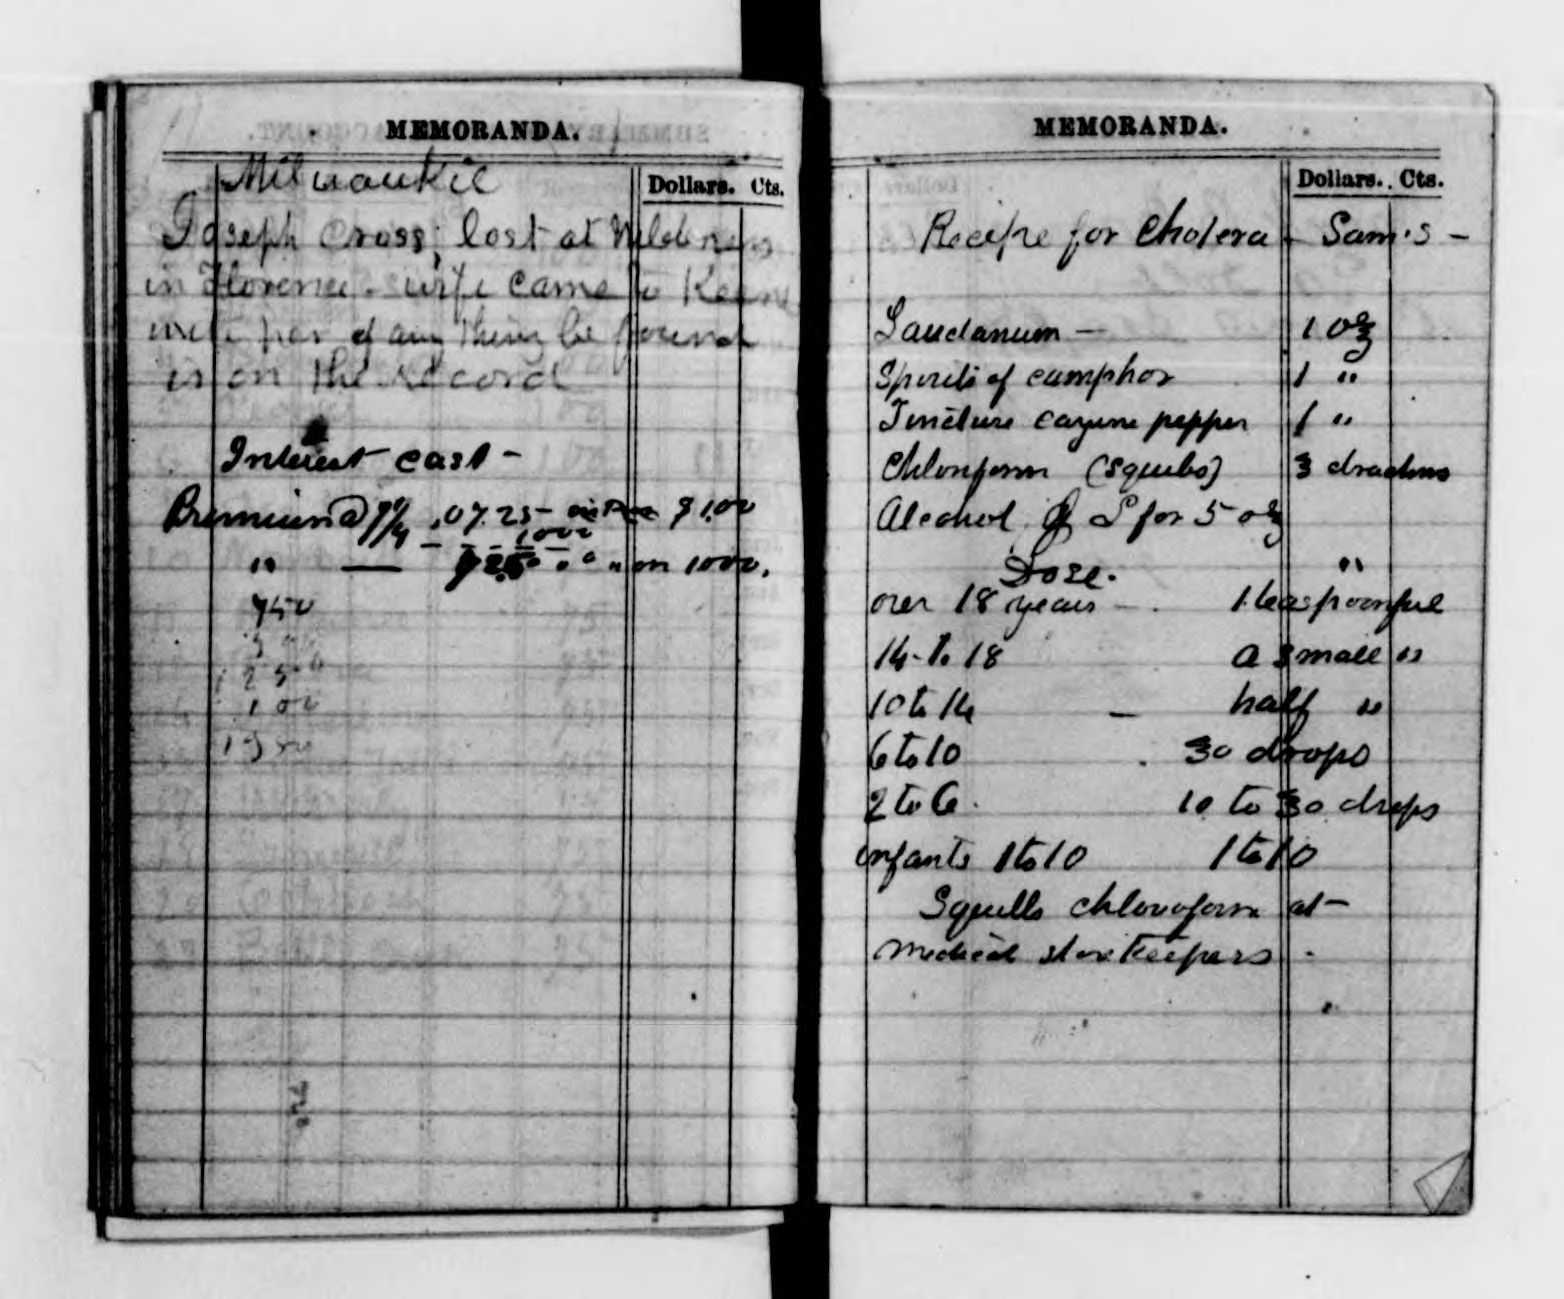 MEMORANDA.
Dollars. Cts.
Milwaukie
Joseph Cross, lost at Wilderness
in Florence. wife came to Keene
if any thing be found
is on the record
Interest cast -
Premium @ 7 1/4 .07.25 $1.00
1000
" — 72.50 " on 1000.
750
1250
100
MEMORANDA.
Dollars. Cts.
Recipe for Cholera - Sam's -
Laudanum - 1 oz
Spirits of camphor 1 "
Tincture cayenne pepper 1 "
Chloroform (Squibs) 3 drachms
Alcohol for 5 oz
Dose. "
over 18 years - 1 teaspoonful
14 to 18 a small "
10 to 14 - half "
6 to 10 . 30 drops
2 to 6 . 10 to 30 drops
infants 1 to 10 1 to 10
Squills chloroform at -
medical storekeepers -